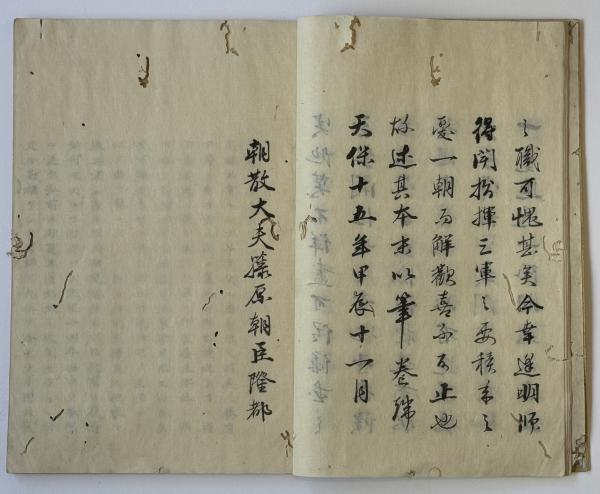 之職可愧甚矣今幸逢明順
得閉指揮三軍之要積年之
憂一朝而解歡喜不可止也
故述其本末以筆卷端
天保十五年甲辰十一月
朝散大夫藤原朝臣隆都